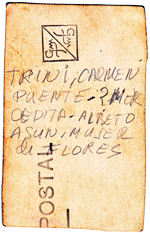 TRINI, CARMEN
PUENTE - ? MER
CEDITA - ALBETO
ASUN, MUJER
di FLORES
POSTAL